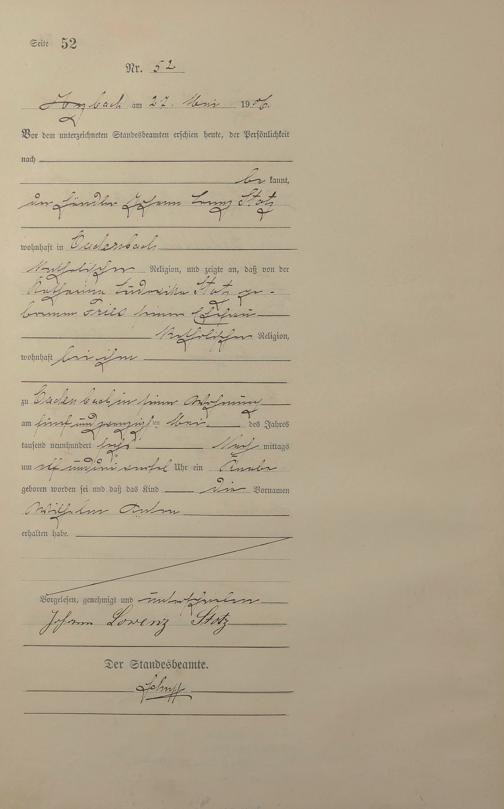 Seite 52
Nr. 52
am 27. Mai 1906.
Vor dem unterzeichneten Standesbeamten erschien heute, der Persönlichkeit
nach
be kannt,
der Händler Johann Lorenz Stotz
wohnhaft in
katholischer Religion, und zeigte an, daß von der
Katharina Ludovika Stotz ge-
borenen seiner Ehefrau
katholischer Religion,
wohnhaft bei ihm
zu in seiner Wohnung
am fünf und zwanzig ten Mai des Jahres
tausend neunhundert sechs Nach mittags
um elf und drei viertel Uhr ein Knabe
geboren worden sei und daß das Kind die Vornamen
Wilhelm Anton
erhalten habe.
Vorgelesen, genehmigt und unterschrieben
Johann Lorenz Stotz
Der Standesbeamte.